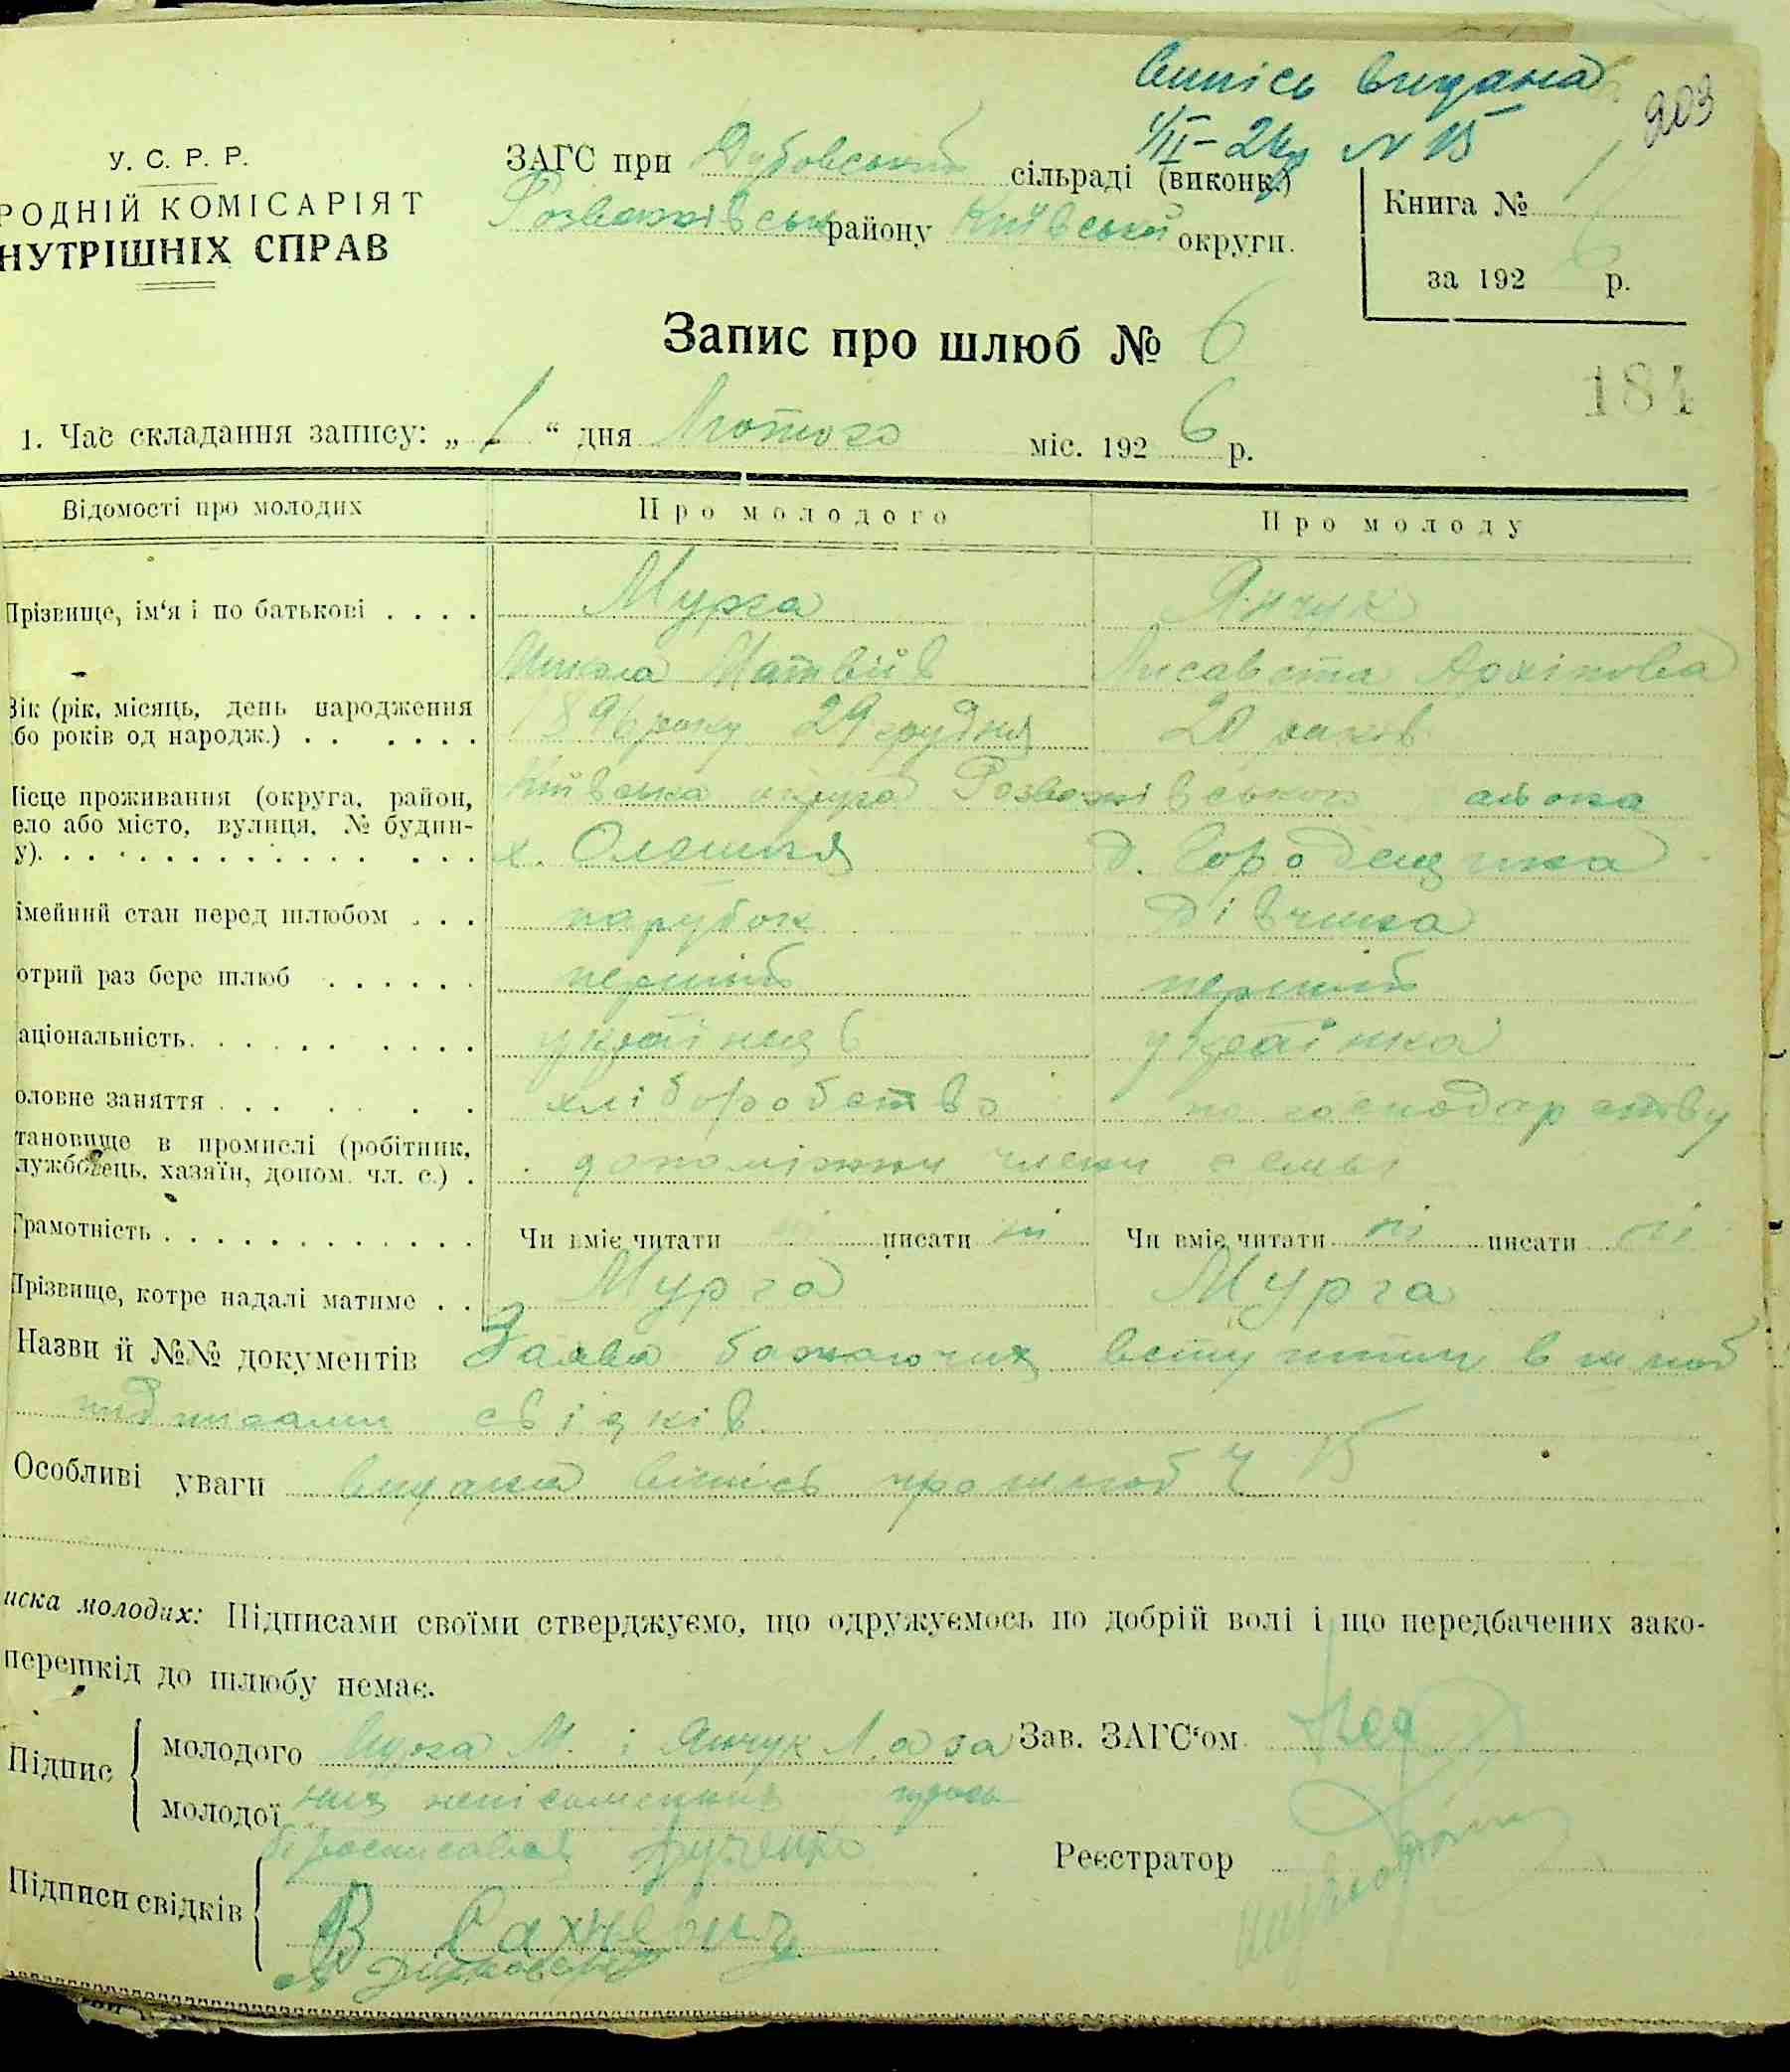 випись видана
1/II-26р N 15
203
У. С. Р. Р.
РОДНІЙ КОМІСАРІЯТ
НУТРІШНІХ СПРАВ
ЗАГС при Дубовській сільраді (виконк.)
Розважівськ району Київської округи.
Книга № 1
за 192 6 р.
Запис про шлюб № 6
184
1. Час складання запису: „ 1 “ дня Лютого міс. 192 6 р.
Відомості про молодих Про молодого Про молоду
Прізвище, ім‘я і по батькові . . . . Мурга Янчук
Микола Матвіїв Лисавета Архіпова
Вік (рік, місяць, день народження 1896 року 29 грудня 20 років
бо років од народж.) . . . . . .
Місце проживання (округа, район, Київська округа Розважівського району
ело або місто, вулиця, № будин-
у). х. Олешня д. Городещина
імейний стан перед шлюбом . . . парубок дівчина
отрий раз бере шлюб . . . . . . перший перший
аціональність. українець українка
оловне заняття хліборобство по господарству
тановище в промислі (робітник,
лужбовець, хазяїн, допом. чл. с.) . допоміжни члени семьї
Грамотність Чи вміє читати ні писати ні Чи вміє читати ні писати ні
Прізвище, котре надалі матиме . . Мурга Мурга
Назви й №№ документів Заява бажаючих вступити в шлюб
підписами свідків
Особливі уваги видана випись про шлюб Ч 15
иска молодих: Підписами своїми стверджуємо, що одружуємось по добрій волі і що передбачених зако-
перешкід до шлюбу немає.
Підпис молодого Мурга М. і Янчук Л. а за Зав. ЗАГС‘ом
молодої них неписьменних
росписався
Реєстратор
Підписи свідків
В Сахневич